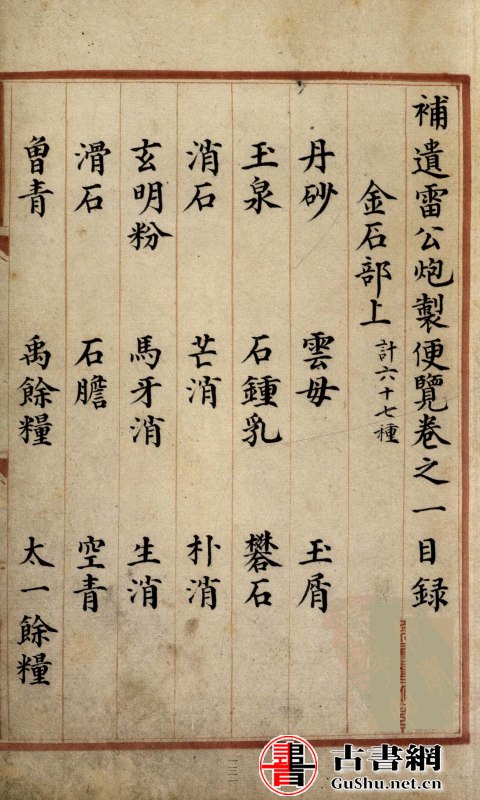 補遺雷公炮製便覽卷之一目録
金石部上 計六十七種
丹砂 雲母 玉屑
玉泉 石鍾乳 礬石
消石 芒消 朴消
玄明粉 馬牙消 生消
滑石 石膽 空青
曾青 禹餘糧 太一餘糧
書
古書網
GuShu.net.cn